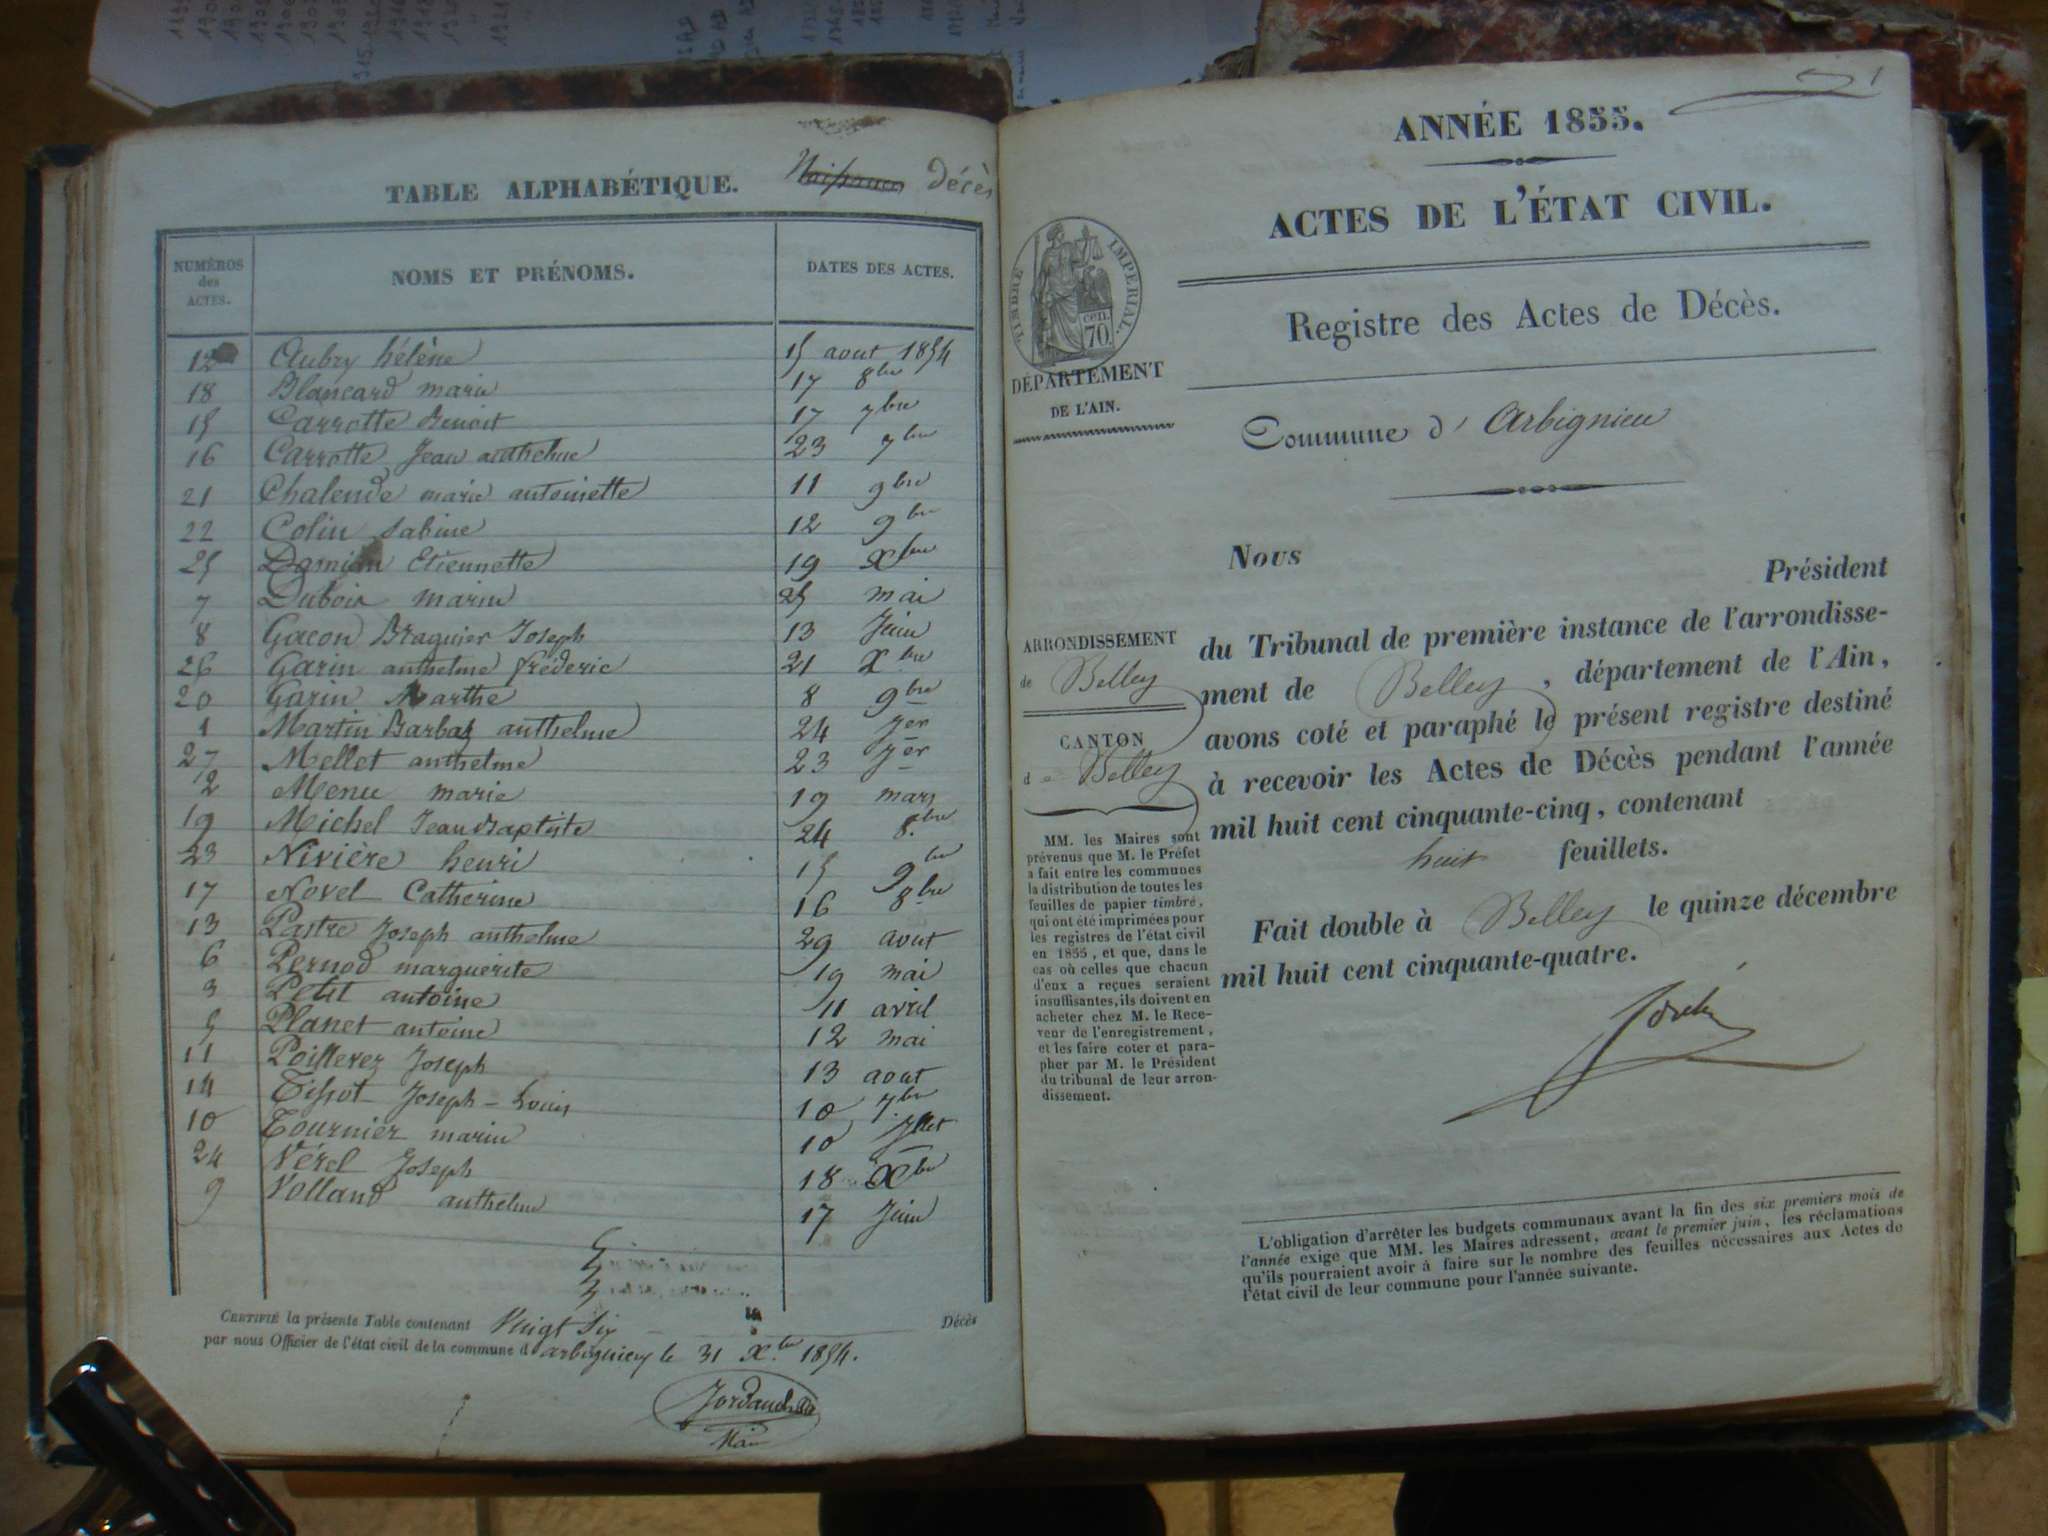 TABLE ALPHABÉTIQUE. Naissances décès
NUMÉROS des ACTES. NOMS ET PRÉNOMS. DATES DES ACTES.
12 Aubry hélène 15 aout 1854
18 Blancard marie 17 8bre
15 Carrotte Benoit 17 7bre
16 Carrotte Jean anthelme 23 7bre
21 Chalende marie antoinette 11 9bre
22 Colin Sabine 12 9bre
25 Damian Etiennette 19 Xbre
7 Dubois marie 25 mai
8 Gacon Braguier Joseph 13 Juin
26 Garin anthelme fréderic 21 Xbre
20 Garin Marthe 8 9bre
1 Martin Barbaz anthelme 24 Jer
27 Mellet anthelme 23 Jer
2 Menu marie 19 mars
19 Michel Jean Baptiste 24 8bre
23 Nivière henri 15 9bre
17 Novel Catherine 16 8bre
13 Pastre Joseph anthelme 29 aout
6 Pernod marguerite 19 mai
3 Petit antoine 11 avril
5 Planet antoine 12 mai
11 Poisserez Joseph 13 aout
14 Tissot Joseph-Louis 10 7bre
10 Tournier marie 10 jllet
24 Vérel Joseph 18 Xbre
9 Volland anthelme 17 Juin
CERTIFIÉ la présente Table contenant Vingt Six Décès
par nous Officier de l'état civil de la commune d'arbignieu le 31 Xbre 1854.
Maire
1
ANNÉE 1855.
ACTES DE L'ÉTAT CIVIL.
TIMBRE IMPERIAL.
CENT. 70.
DÉPARTEMENT
DE L'AIN.
Registre des Actes de Décès.
Commune d'Arbignieu
ARRONDISSEMENT
de Belley
CANTON
de Belley
MM. les Maires sont
prévenus que M. le Préfet
a fait entre les communes
la distribution de toutes les
feuilles de papier timbré,
qui ont été imprimées pour
les registres de l'état civil
en 1855, et que, dans le
cas où celles que chacun
d'eux a reçues seraient
insuffisantes, ils doivent en
acheter chez M. le Rece-
veur de l'enregistrement,
et les faire coter et para-
pher par M. le Président
du tribunal de leur arron-
dissement.
Nous Président
du Tribunal de première instance de l'arrondisse-
ment de Belley, département de l'Ain,
avons coté et paraphé le présent registre destiné
à recevoir les Actes de Décès pendant l'année
mil huit cent cinquante-cinq, contenant
huit feuillets.
Fait double à Belley le quinze décembre
mil huit cent cinquante-quatre.
L'obligation d'arrêter les budgets communaux avant la fin des six premiers mois de
l'année exige que MM. les Maires adressent, avant le premier juin, les réclamations
qu'ils pourraient avoir à faire sur le nombre des feuilles nécessaires aux Actes de
l'état civil de leur commune pour l'année suivante.